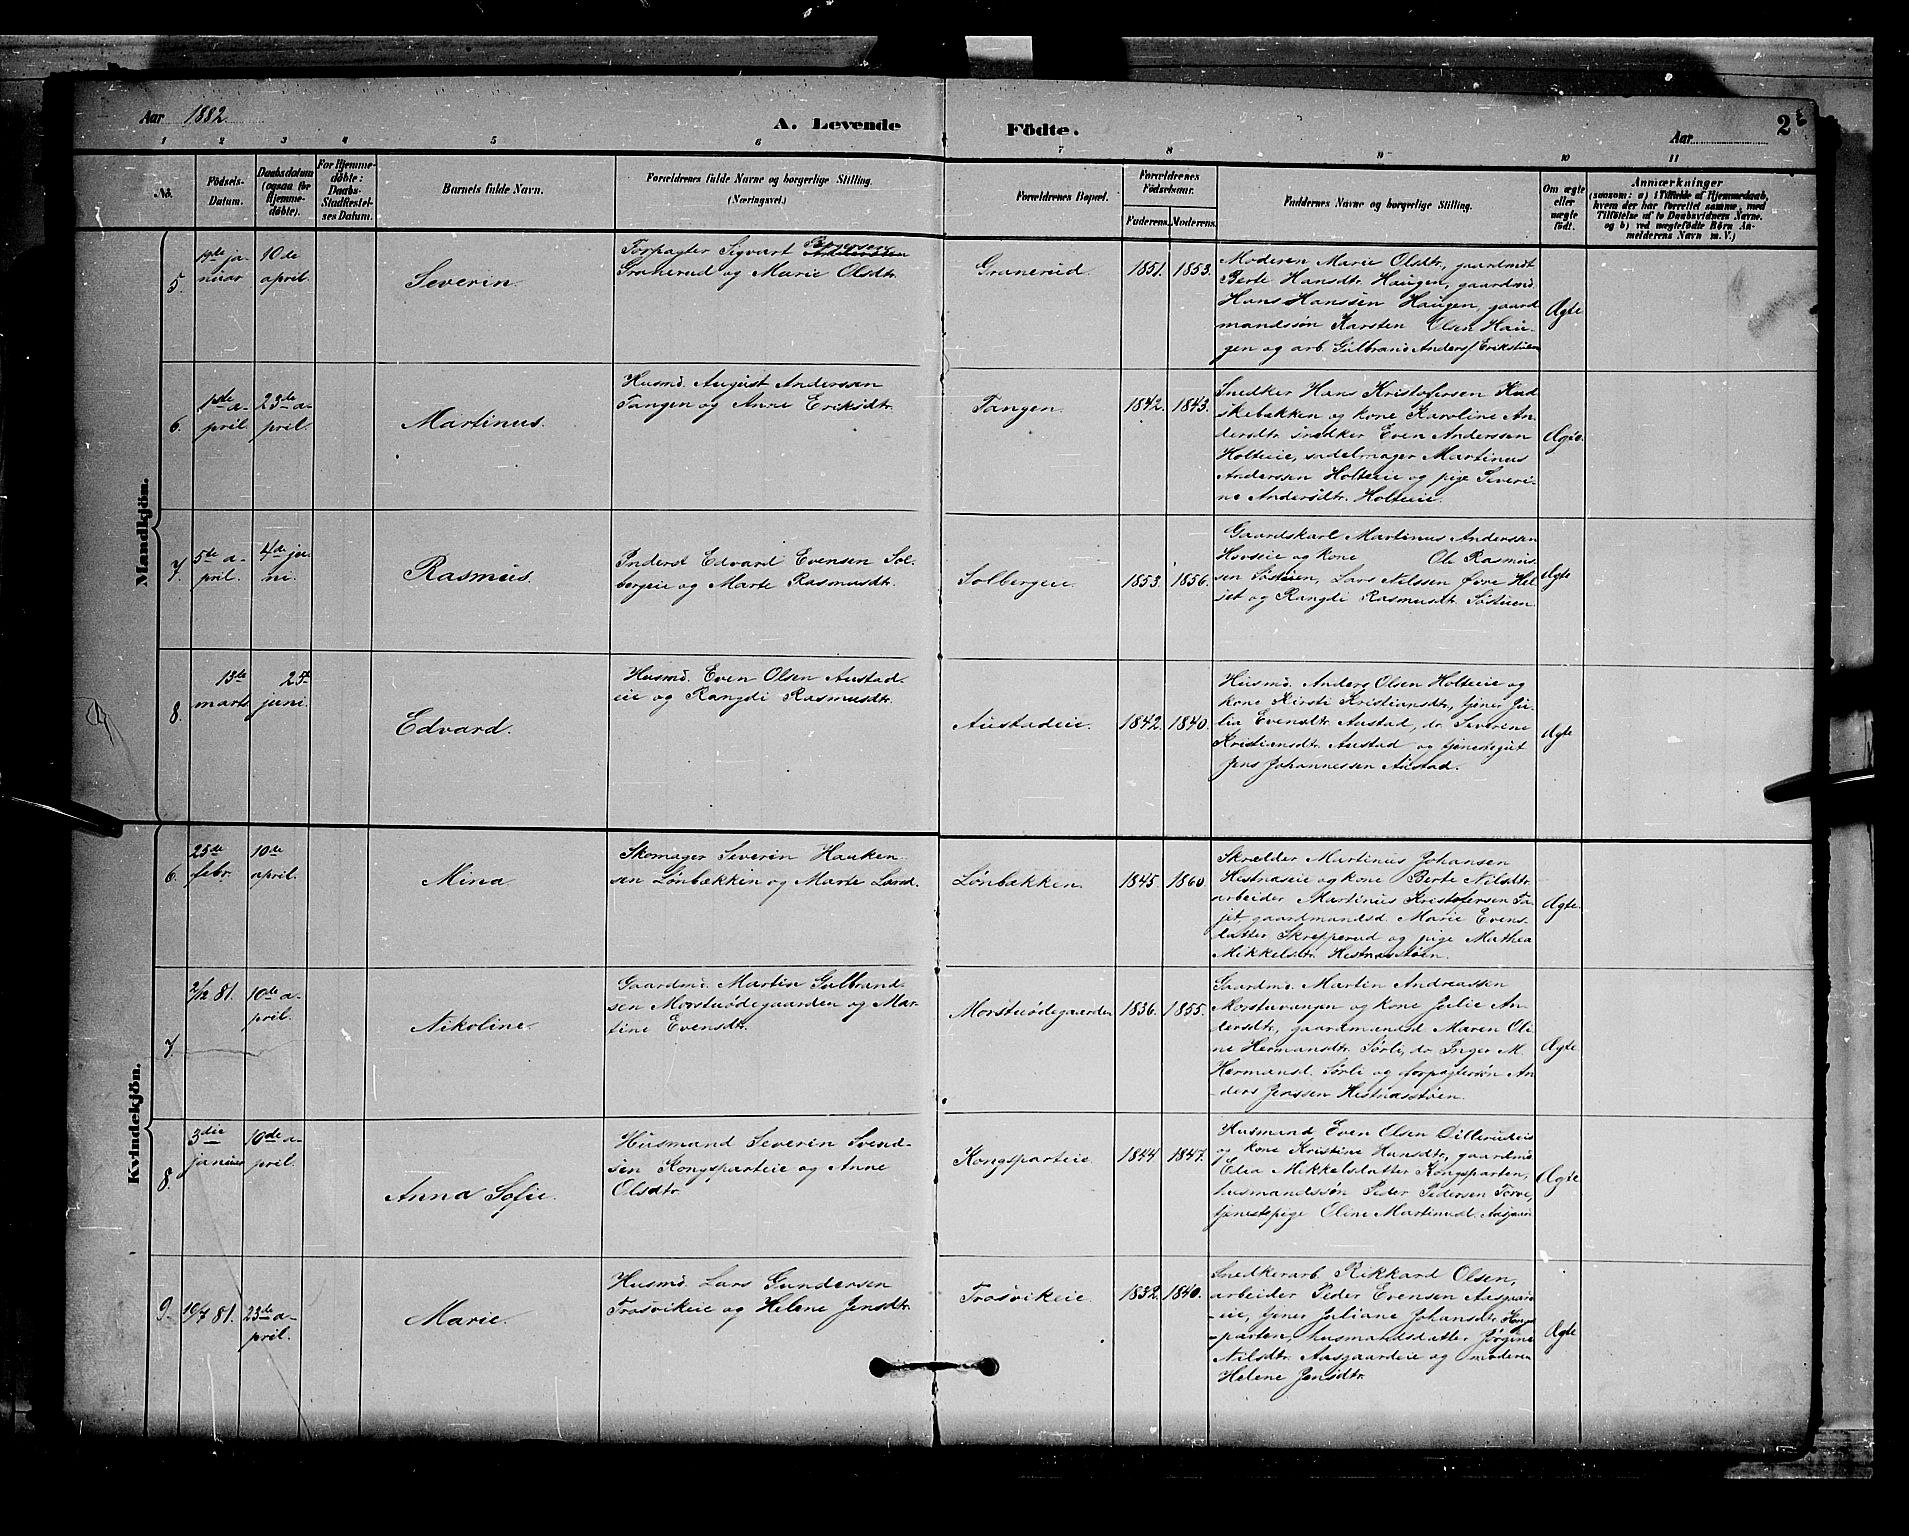 Aar 1882.
A. Levende
Födte.
Aar
2
1 2 3 4 5 6 7 8 9 10 11
No.
Födsels-
Datum.
Daabsdatum
(ogsaa for
Hjemme-
döbte).
For Hjemme-
döbte:
Daabs-
Stadfæstel-
ses Datum.
Barnets fulde Navn.
Forældrenes fulde Navne og borgerlige Stilling.
(Næringsvei.)
Forældrenes Bopæl.
Forældrenes
Födselsaar.
Faderens. Moderens.
Faddernes Navne og borgerlige Stilling.
Om ægte
eller
uægte
födt.
Anmærkninger
(saasom: a) i Tilfælde af Hjemmedaab,
hvem der har forrettet samme, med
Tilföielse af to Daabsvidners Navne,
og b) ved uægtefödte Börn An-
melderens Navn m. V.)
Mandkjön.
5.
1ste ja-
nuar
10de
april.
Severin.
Forpagter Sigvart
Granerud og Marie Olsdtr.
Granerud.
1851. 1853.
Moderen Marie Olsdtr, gaardmdt
Berte Hansdtr. Haugen, gaardmd.
Hans Hanssen Haugen, gaard
mandssøn Karsten Olsen Hau-
gen og arb. Gulbrand Anders Erikstuen
Ægte
6.
1ste a-
pril.
23de a-
pril.
Martinus.
Husmd. August Anderssen
Tangen og Anne Eriksdtr.
Tangen.
1842. 1843.
Snedker Hans Kristofersen
skebakken og kone Karoline An-
dersdtr. snedker Even Anderssen
Holteie, sadelmager Martinus
Anderssen Holteie og pige Severi-
ne Andersdtr. Holteie.
Ægte.
7.
5te a-
pril.
4de ju-
ni.
Rasmus.
Inderst Edvard Evensen Sol-
bergeie og Marte Rasmusdtr.
Solbergeie.
1853. 1856.
Gaardskarl Martinus Anderssen
Hovseie og kone Ole Rasmus-
sen Søstuen, Lars Nilssen Øvre Hel-
jet og Rangdi Rasmusdtr. Søstuen.
Ægte
8.
13de
marts
25de
juni.
Edvard.
Husmd. Even Olsen Austad-
eie og Rangdi Rasmusdtr.
Austadeie.
1842. 1840.
Husmd. Anders Olsen Holteie og
kone Kirsti Kristiansdtr, tjener Ju-
lia Evensdtr Austad, do. Severine
Kristiansdtr. Austad og tjenestegut
Jens Johannessen Austad.
Ægte
Kvindekjön.
6.
25de
febr.
10de
april.
Mina.
Skomager Severin Hauken-
sen Lønbækken og Marte Larsd.
Lønbækken.
1845. 1860.
Skrædder Martinus Johansen
Hestnæseie og kone Berte Nilsdtr.
arbeider Martinus Kristofersen Fa-
jet, gaardmandsd. Marie Evens-
datter Skrepperud og pige Mathea
Mikkelsdtr. Hestnæsstøen.
Ægte.
7.
2/12 81.
10de a-
pril.
Nikoline
Gaardmd. Martin Gulbrand-
sen Morstuødegaarden og Mar-
tine Evensdtr.
Morstuødegaarden
1836. 1855.
Gaardmd. Martin Andreassen
Morstuvangen og kone Julie An-
dersdtr, gaardmandsd Maren Oli-
ne Hermansdtr. Sørli, do Inger M.
Hermansd. Sørli og forpagtersøn An-
ders Jenssen Hestnæsstøen.
Ægte
8.
3die
januar
10de a-
pril.
Anna Sofie.
Husmand Severin Svend-
sen Kongsparteie og Anne
Olsdtr.
Kongsparteie.
1844. 1847.
Husmand Even Olsen Dillerudeie
og kone Kristine Hansdtr, gaardmd
Elia Mikkelsdatter Kongsparten,
husmandssøn Peder Pedersen Torve,
tjenestepige Oline Martinusd. Aasgaar
Ægte
9.
10/7 81.
23de a-
pril.
Marie.
Husmd. Lars Gundersen
Frosvikeie og Helene Jensdtr.
Frosvikeie.
1832. 1840.
Snedkerarb. Rikkard Olsen,
arbeider Peder Evensen Aasgaard-
eie, tjener Juliane Johansdtr. Kongs-
parten, husmandsdatter Jørgine
Nilsdtr. Aasgaardeie og moderen
Helene Jensdtr.
Ægte